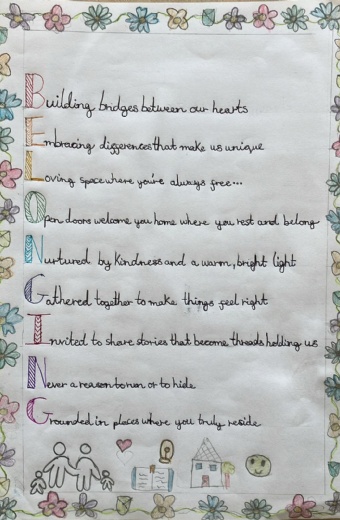 Building bridges between our hearts
Embracing differences that make us unique
Loving space where you're always free...
Open doors welcome you home where you rest and belong
Nurtured by kindness and a warm, bright light
Gathered together to make things feel right
Invited to share stories that become threads holding us
Never a reason to run or to hide
Grounded in places where you truly reside